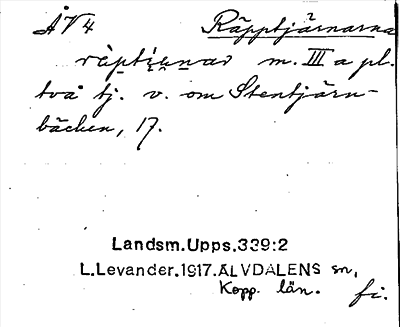 ÅV4 Räpptjärnarna
m. III a pl.
två tj. v. om Stentjärn-
bäcken, 17.
Landsm.Upps.339:2
L.Levander.1917.ÄLVDALENS sn,
Kopp. län. fi.